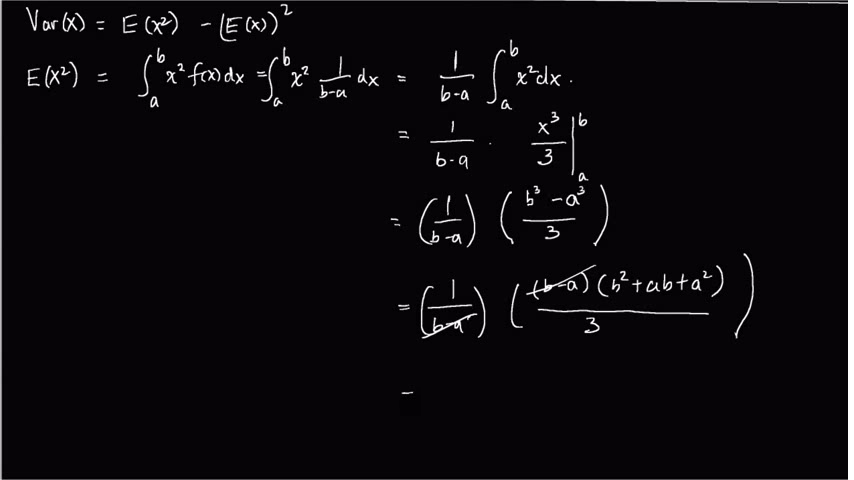 Var(x) = E(x²) - (E(x))²
E(x²) = ∫_a^b x² f(x) dx = ∫_a^b x² 1/(b-a) dx = 1/(b-a) ∫_a^b x² dx.
= 1/(b-a) · x³/3 |_a^b
= (1/(b-a)) ((b³ - a³)/3)
= (1/(b-a)) ((b-a)(b² + ab + a²)/3)
=